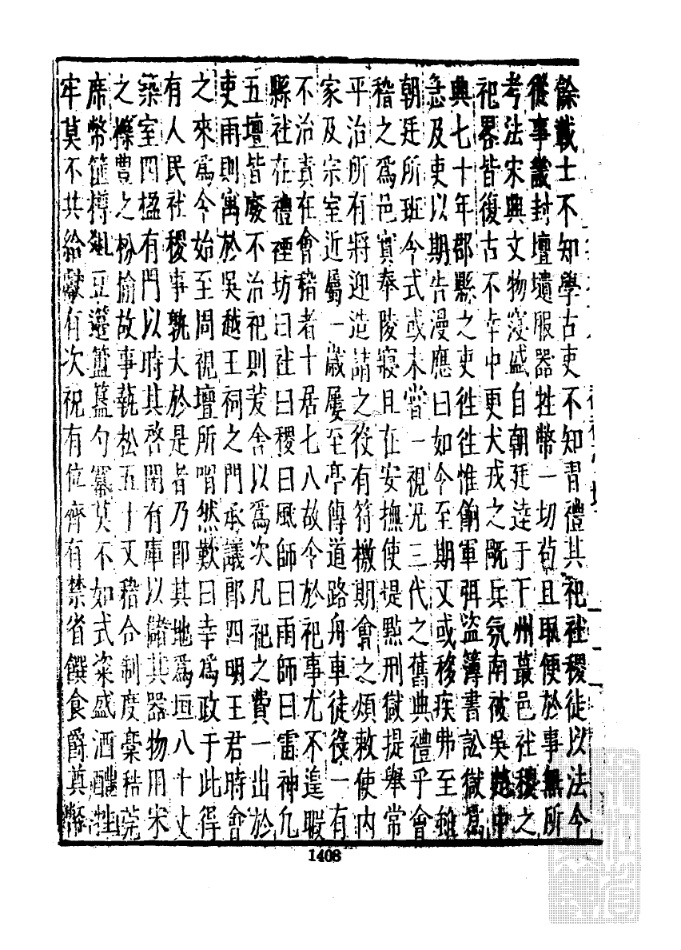 餘載士不知學古吏不知習禮其祀社稷徒以法令
從事叢封壇壝服器牲幣一切苟且取便於事無所
考法宋興文物寖盛自朝廷達于下州蕞邑社稷之
祀畧皆復古不幸中更犬戎之禍兵氛南被吳越中
典七十年郡縣之吏徃徃惟餉軍弭盜簿書訟獄為
急及吏以期告漫應曰如令至期又或移疾弗至雖
朝廷所班令式或未嘗一視况三代之舊典禮乎會
稽之為邑實奉陵寢且在安撫使提點刑獄提舉常
平治所有將迎造請之役有符檄期會之煩敕使內
家及宗室近屬一歲屢至亭傳道路舟車徒役一有
不治責在會稽者十居七八故令於祀事尤不遑暇
縣社在禮禋坊曰社曰稷曰風師曰雨師曰雷神凡
五壇皆廢不治祀則茇舍以為次凡祀之費一出於
吏雨則寓於吳越王祠之門承議郎四明王君時會
之來為令始至周視壇所喟然歎曰幸為政于此得
有人民社稷事孰大於是者乃即其地為垣八十丈
築室四楹有門以時其啓閉有庫以儲其器物用宋
之櫟豐之枌榆故事蓺松五十丈稽合制度橐秸莞
席幣篚樽爼豆籩簠簋勺冪莫不如式粢盛酒醴牲
牢莫不共給獻有次祝有位齊有禁省饌食爵奠幣
1408